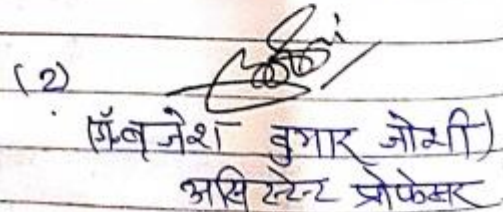 (2)
(डॉ. बृजेश कुमार जोशी)
असिस्टेन्ट प्रोफेसर